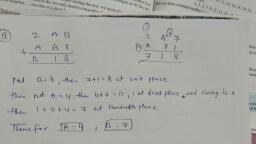 9
2 A B
+ A B 1
B 1 8
1
2 4 7
A 7 1
7 1 8
Put B=7, then 7+1=8 at unit place
then put A=4, then 4+7=11, 1 at tens place and carry is 1
then 1+2+4=7 at hundredth place
Therefore A=4, B=7